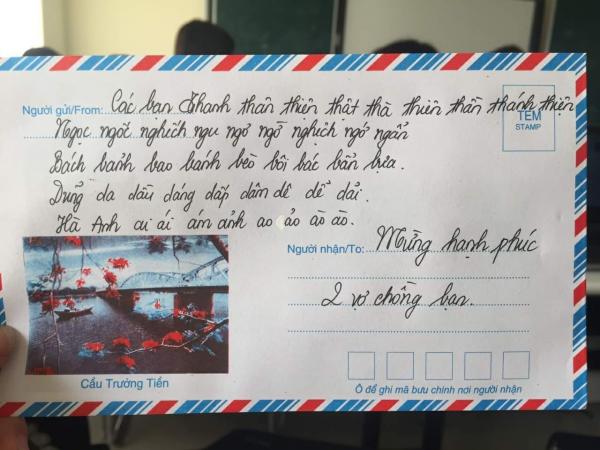 Người gửi/From: Các bạn Thanh thân thiện thật thà thiên thần thánh thiện
TEM
STAMP
Ngọc ngơi nghịch ngu ngơ ngõ nghịch ngơ ngẩn
Bách bảnh bao bánh bèo bôi bác bẩn bựa.
Dung da dâu dáng dấp dâm dê dể dãi.
Hà Anh ai ái ám ảnh ao ảo ào ào.
Người nhận/To: Mừng hạnh phúc
2 vợ chồng bạn.
Cầu Trường Tiền
Ô để ghi mã bưu chính nơi người nhận